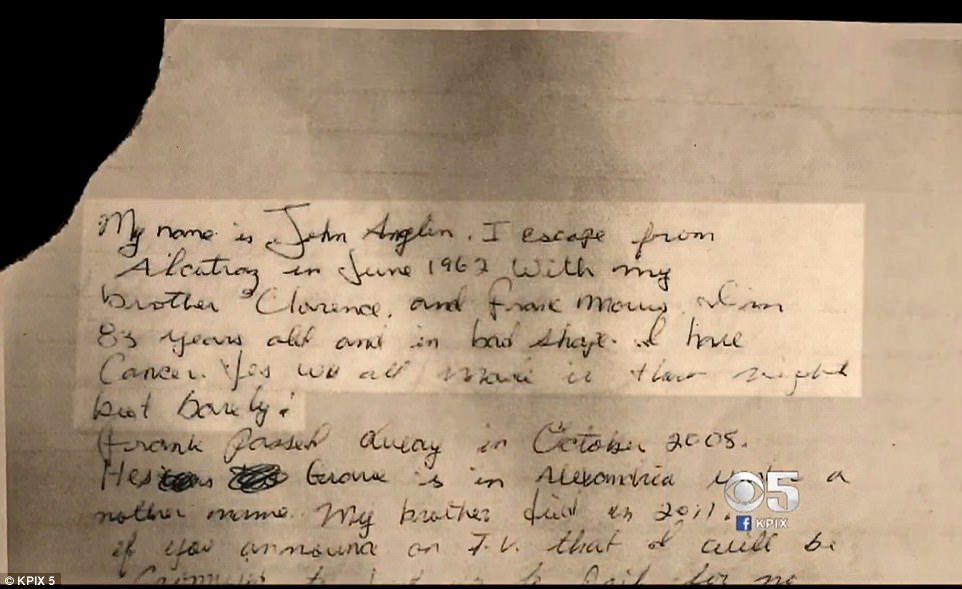 My name is John Anglin. I escape from
Alcatraz in June 1962 With my
brother Clarence, and Frank Morris. I'm
83 years old and in bad shape. I have
Cancer. Yes we all made it that night
but barely!
Frank passed away in October 2008.
Hes Grave is in Alexandria a
nother name. My brother died in 2011.
if you announce on T.V. that I will be
to jail for no
5
f KPIX
© KPIX 5